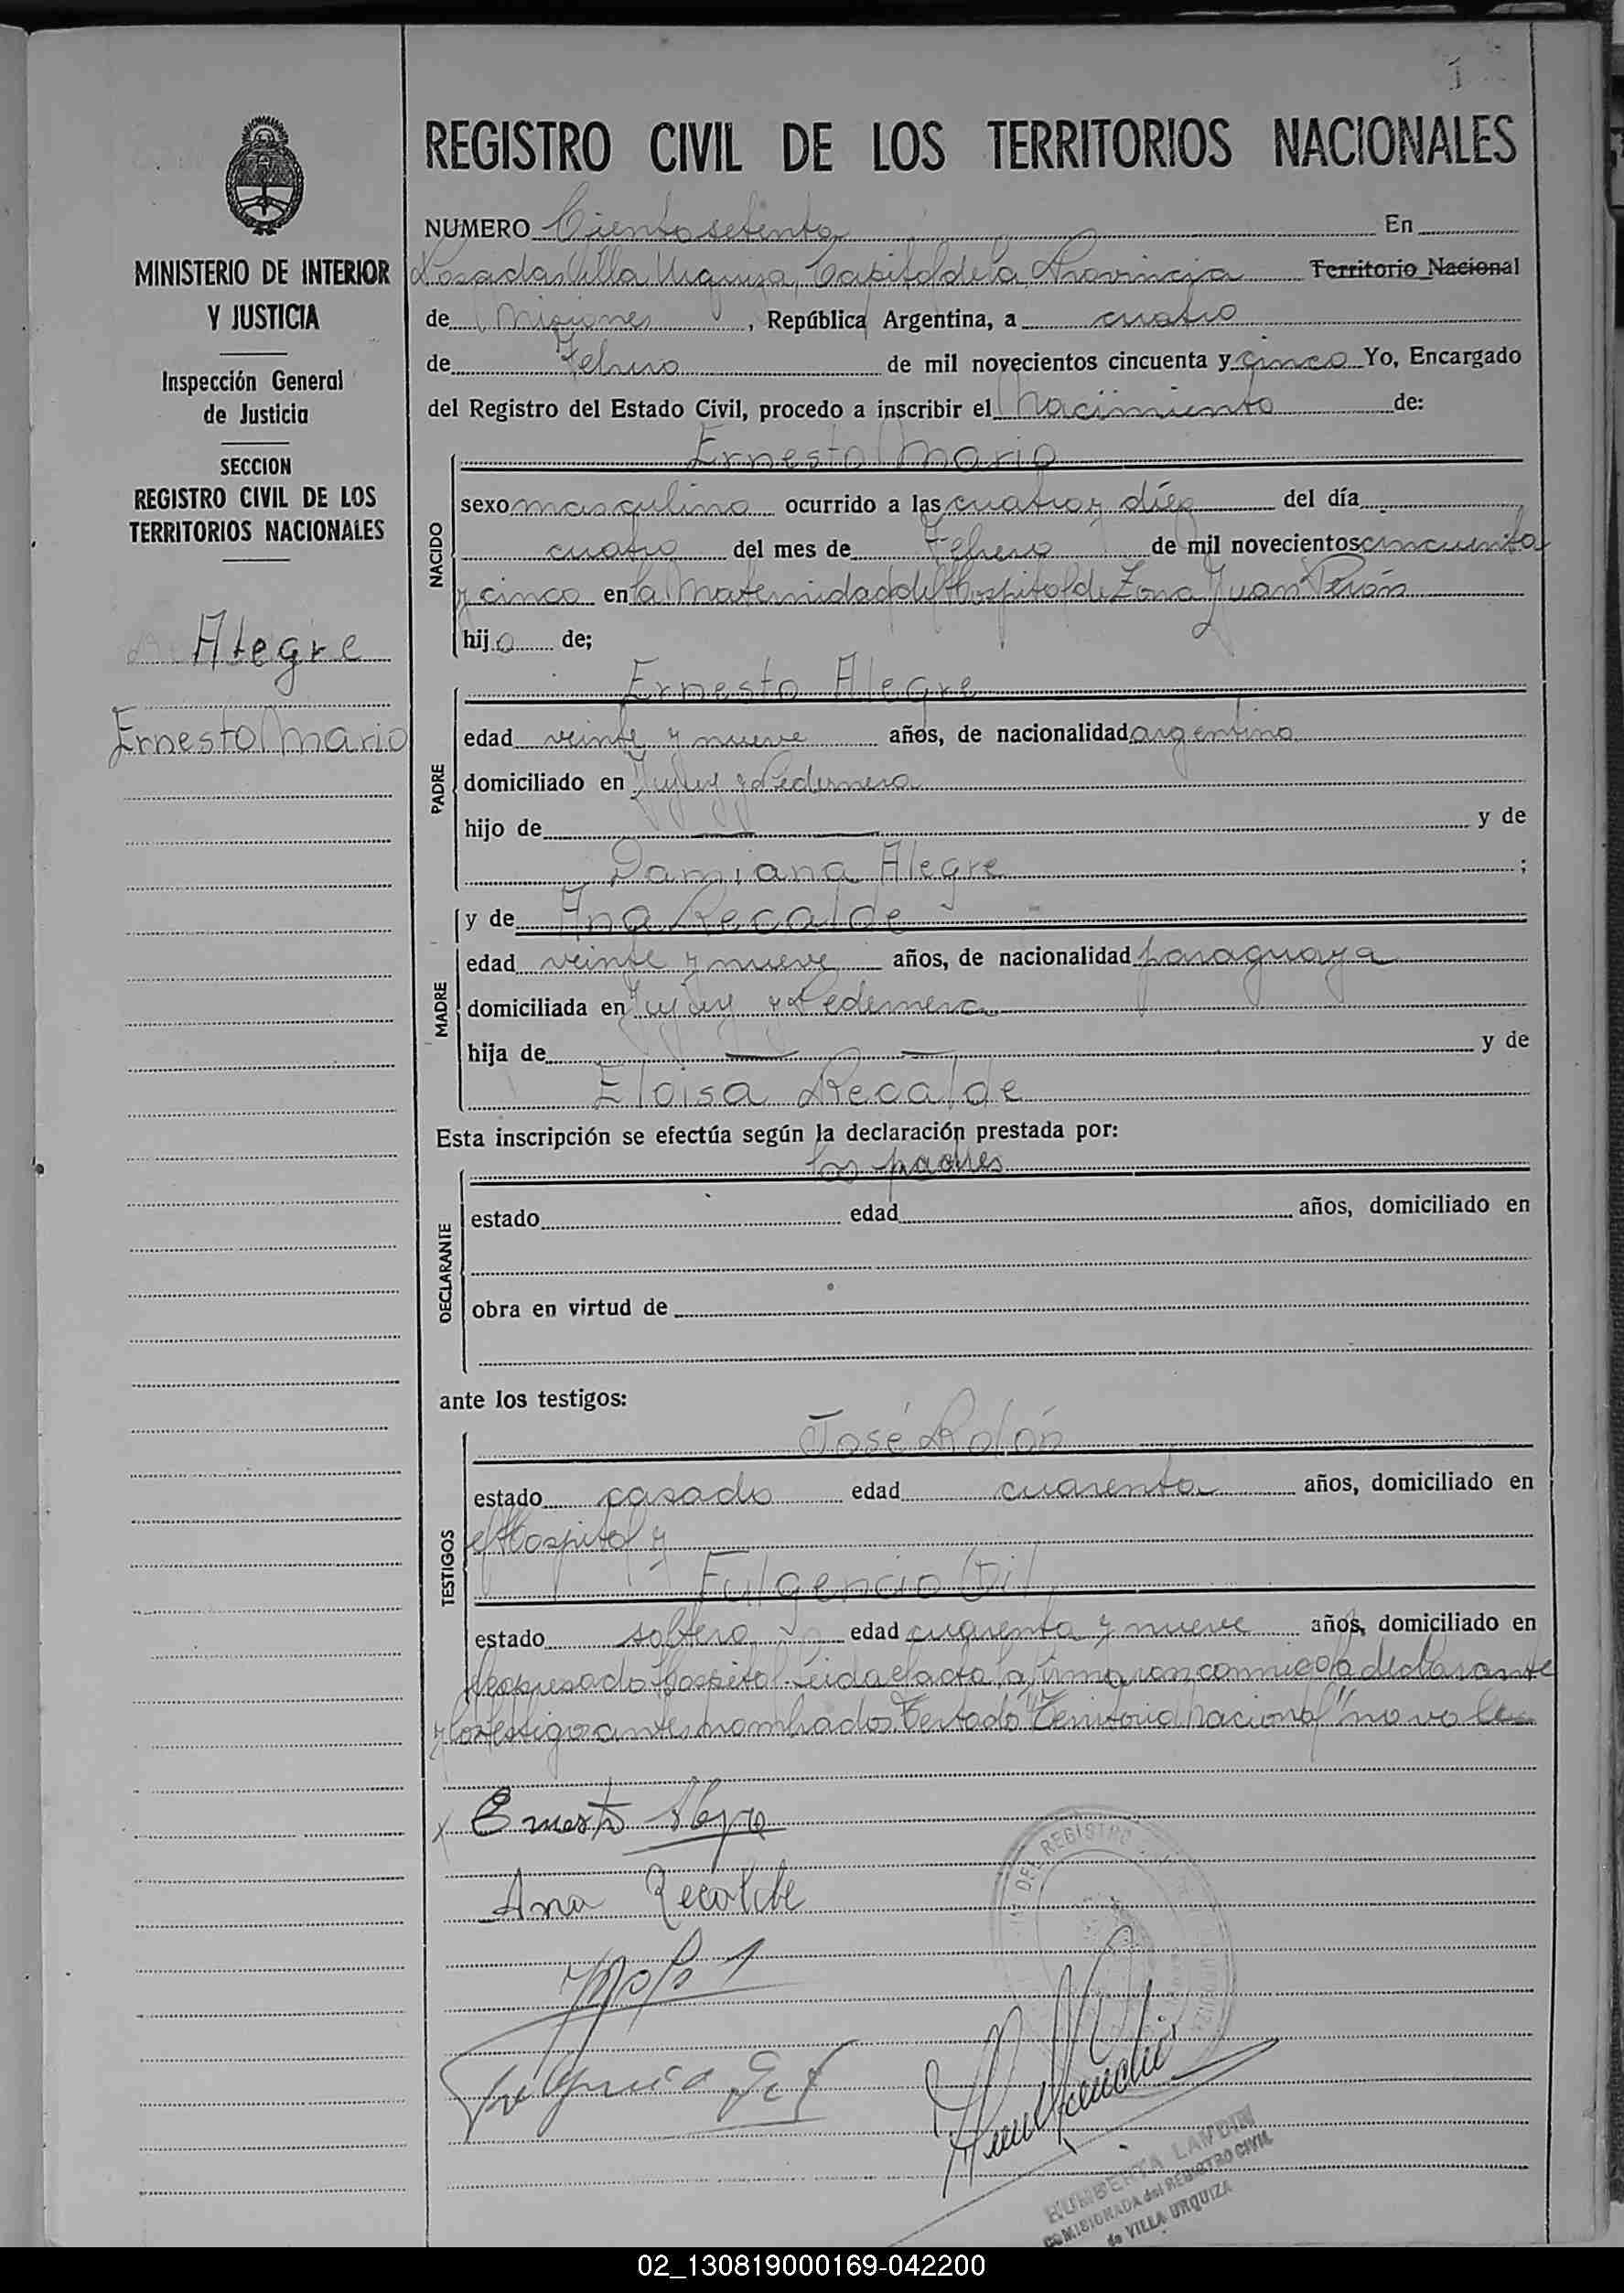 1
REGISTRO CIVIL DE LOS TERRITORIOS NACIONALES
NUMERO Ciento setenta En
Posadas Villa Urquiza, Capital de la Provincia Territorio Nacional
de Misiones, República Argentina, a cuatro
de Febrero de mil novecientos cincuenta y cinco Yo, Encargado
del Registro del Estado Civil, procedo a inscribir el Nacimiento de:
MINISTERIO DE INTERIOR
Y JUSTICIA
Inspección General
de Justicia
SECCION
REGISTRO CIVIL DE LOS
TERRITORIOS NACIONALES
Alegre
Ernesto Mario
NACIDO
Ernesto Mario
sexo masculino ocurrido a las cuatro y diéz del día
cuatro del mes de Febrero de mil novecientos cincuenta
y cinco en la Maternidad del Hospital de Zona Juan Perón
hijo de;
PADRE
Ernesto Alegre
edad veinte y nueve años, de nacionalidad argentino
domiciliado en Jujuy y Pedernera
hijo de y de
Damiana Alegre ;
MADRE
y de Ana Recalde
edad veinte y nueve años, de nacionalidad paraguaya
domiciliada en Jujuy y Pedernera
hija de y de
Eloisa Recalde
Esta inscripción se efectúa según la declaración prestada por:
DECLARANTE
los padres
estado edad años, domiciliado en
obra en virtud de
ante los testigos:
TESTIGOS
José Rolón
estado casado edad cuarenta años, domiciliado en
el Hospital y
Fulgencio Gil
estado soltero edad cuarenta y nueve años, domiciliado en
el expresado Hospital. Leida el acta, la firmaron conmigo la declarante
y los testigos antes nombrados. Testado "Territorio Nacional" no vale
Ernesto Alegre
Ana Recalde
Fulgencio Gil
DEL REGISTRO
HUMBERTA LANDIN
COMISIONADA del REGISTRO CIVIL
de VILLA URQUIZA
02_130819000169-042200